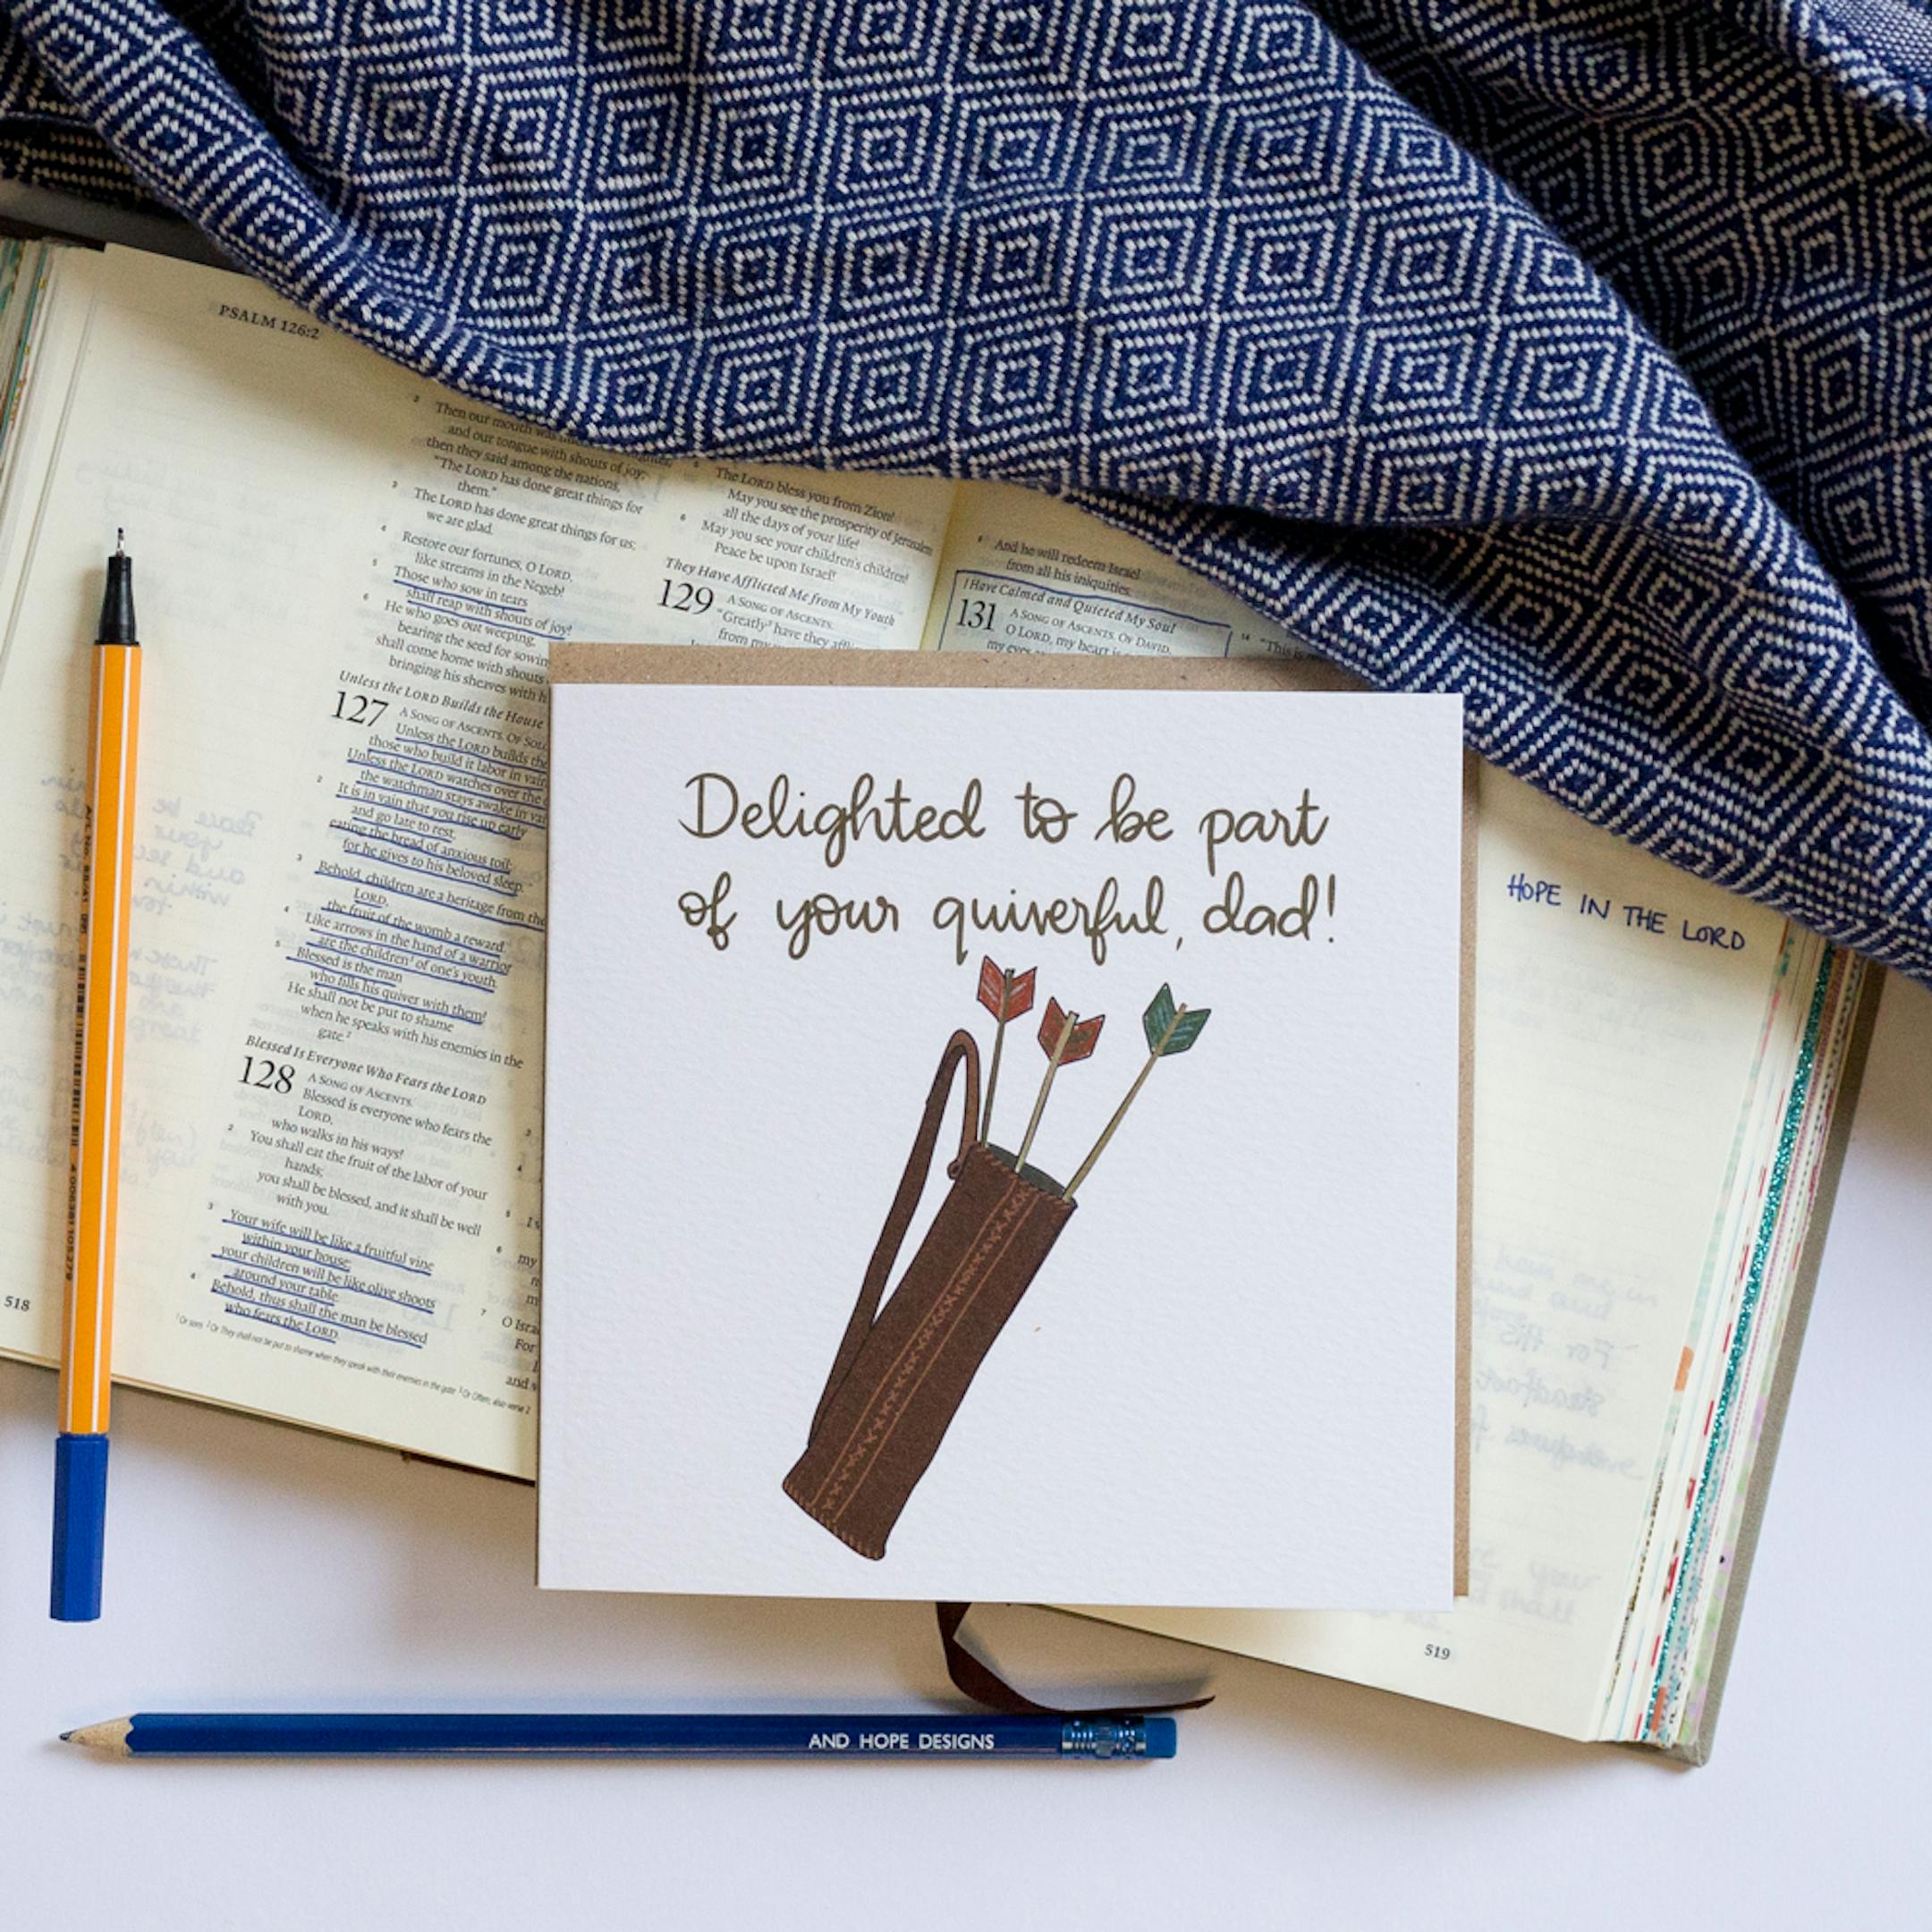 PSALM 126:2
2 Then our mouth was
and our tongue with shouts of joy;
then they said among the nations,
"The LORD has done great things for
them."
3 The LORD has done great things for us;
we are glad.
4 Restore our fortunes, O LORD,
like streams in the Negeb!
5 Those who sow in tears
shall reap with shouts of joy!
6 He who goes out weeping,
bearing the seed for sowin
shall come home with shouts
bringing his sheaves with h
Unless the LORD Builds the House
127 A SONG OF ASCENTS. OF SOL
Unless the LORD builds the
those who build it labor in vain
Unless the LORD watches over the c
the watchman stays awake in vai
2 It is in vain that you rise up early
and go late to rest,
eating the bread of anxious toil;
for he gives to his beloved sleep.
3 Behold, children are a heritage from the
LORD,
the fruit of the womb a reward.
4 Like arrows in the hand of a warrior
are the children¹ of one's youth.
5 Blessed is the man
who fills his quiver with them!
He shall not be put to shame
when he speaks with his enemies in the
gate.²
Blessed Is Everyone Who Fears the LORD
128 A SONG OF ASCENTS.
Blessed is everyone who fears the
LORD,
who walks in his ways!
2 You shall eat the fruit of the labor of your
hands;
you shall be blessed, and it shall be well
with you.
3 Your wife will be like a fruitful vine
within your house;
your children will be like olive shoots
around your table.
4 Behold, thus shall the man be blessed
who fears the LORD.
¹ Or sons ² Or They shall not be put to shame when they speak with their enemies in the gate ³ Or Often; also verse 2
518
5 The LORD bless you from Zion!
May you see the prosperity of Jerusalem
all the days of your life!
6 May you see your children's children!
Peace be upon Israel!
They Have Afflicted Me from My Youth
129 A SONG OF ASCENTS.
"Greatly³ have they affli
from my
my
7 O Isra
For
and
8 And he will redeem Israel
from all his iniquities.
I Have Calmed and Quieted My Soul
131 A SONG OF ASCENTS. OF DAVID.
O LORD, my heart is
my eyes
14 "This is
HOPE IN THE LORD
519
Delighted to be part
of your quiverful, dad!
AND HOPE DESIGNS